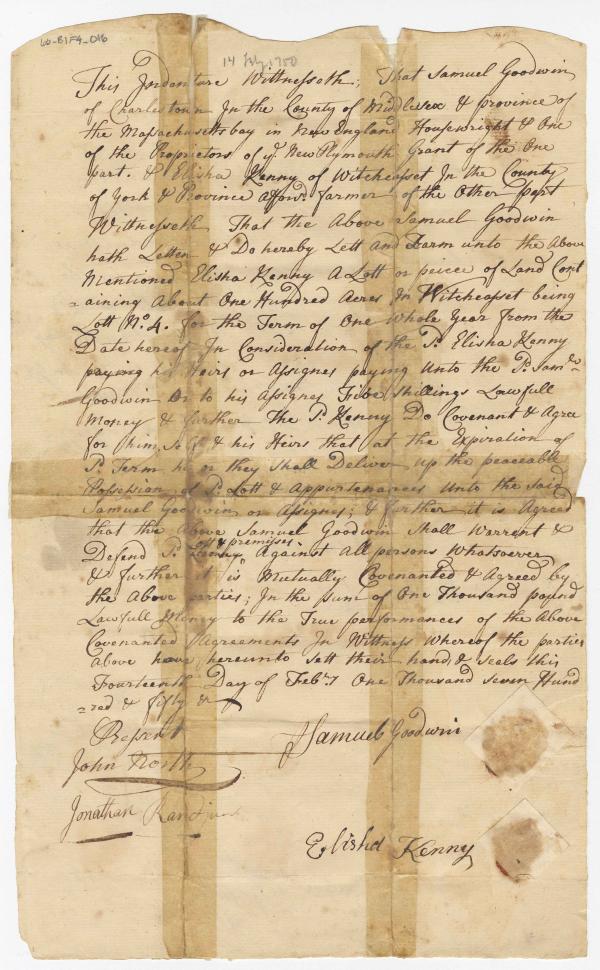 60-B1F4-016
14 Feby 1750
This Indenture Wittnesseth, That Samuel Goodwin
of Charlestown In the County of Middlesex & province of
the Massachusettsbay in New England Housewright & One
of the Proprietors of ye. New Plymouth Grant of the One
part. & Elisha Kenny of Witchcasset In the County
of York & Province Aforesd. farmer of the Other part
Wittnesseth That the Above Samuel Goodwin
hath Letten & Do hereby Lett and Farm unto the Above
Mentioned Elisha Kenny A Lott or peice of Land Cont
=aining About One Hundred Acres In Witchcasset being
Lott No. 4. for the Term of One Whole Year from the
Date hereof In Consideration of the Sd. Elisha Kenny
paying his Heirs or Assignes paying Unto the Sd. Samll.
Goodwin Or to his Assignes Five Shillings Lawfull
Money & further The Sd. Kenny Do Covenant & Agree
for him Self & his Heirs that at the Expiration of
Sd. Term he or they Shall Deliver up the peaceable
Possession of Sd. Lott & Appurtenances Unto the Said
Samuel Goodwin or Assignes; & further it is Agreed
that the Above Samuel Goodwin Shall Warrent &
Lott & premises
Defend Sd. Against All persons Whatsoever
& further it is Mutually Covenanted & Agreed by
the Above parties; In the Sum of One Thousand pound
Lawfull Money to the True performances of the Above
Covenanted Agreements In Wittness Whereof the parties
Above have hereunto Sett their hand & Seals this
Fourteenth Day of Feby. One Thousand Seven Hund
=red & fifty &
Present
Samuel Goodwin
John North
Jonathan
Elisha Kenny